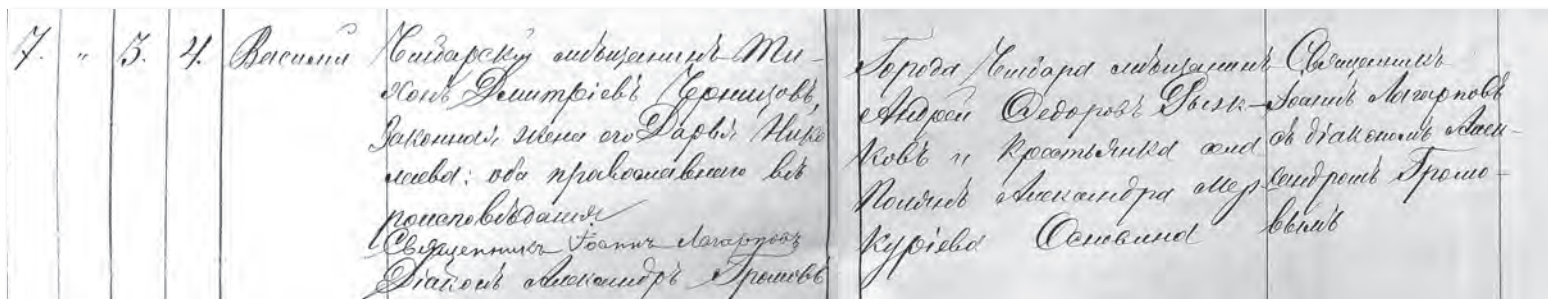 7. " 3. 4. Василій
Чембарскій мѣщанинъ Ти-
хонъ Димитріевъ
Законная жена его Дарья Нико
лаева: оба православнаго вѣ
роисповѣданія
Священникъ Іоаннъ Лагарповъ
Діаконъ Александръ Громовъ
Города Чембара мѣщанинъ
Андрей Ѳедоровъ
ковъ и крестьянка села
Полянъ Александра Мер-
курьева
Священникъ
Іоаннъ Лагарповъ
съ діакономъ Алек-
сандромъ Громо-
вымъ